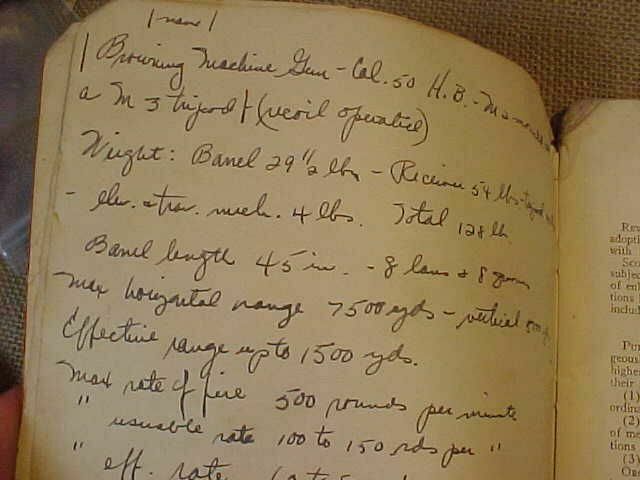 |-name|
| Browning Machine Gun - Cal. 50 H.B. - M2 mounted on
a M 3 tripod | (recoil operated)
Weight: Barrel 29 1/2 lbs - Receiver 54 lbs - tripod
- elev. & trav. mech. 4 lbs. Total 128 lb.
Barrel length 45 in. - 8 lans & 8 grooves
Max horizontal range 7500 yds - vertical
Effective range up to 1500 yds.
Max rate of fire 500 rounds per minute
" useable rate 100 to 150 rds per "
" eff. rate
Rev
adopti
with
Sco
subjec
of enl
tions
includ
Pur
geous
highes
their
(1)
ordin
(2)
of me
tions
(3)
Obs